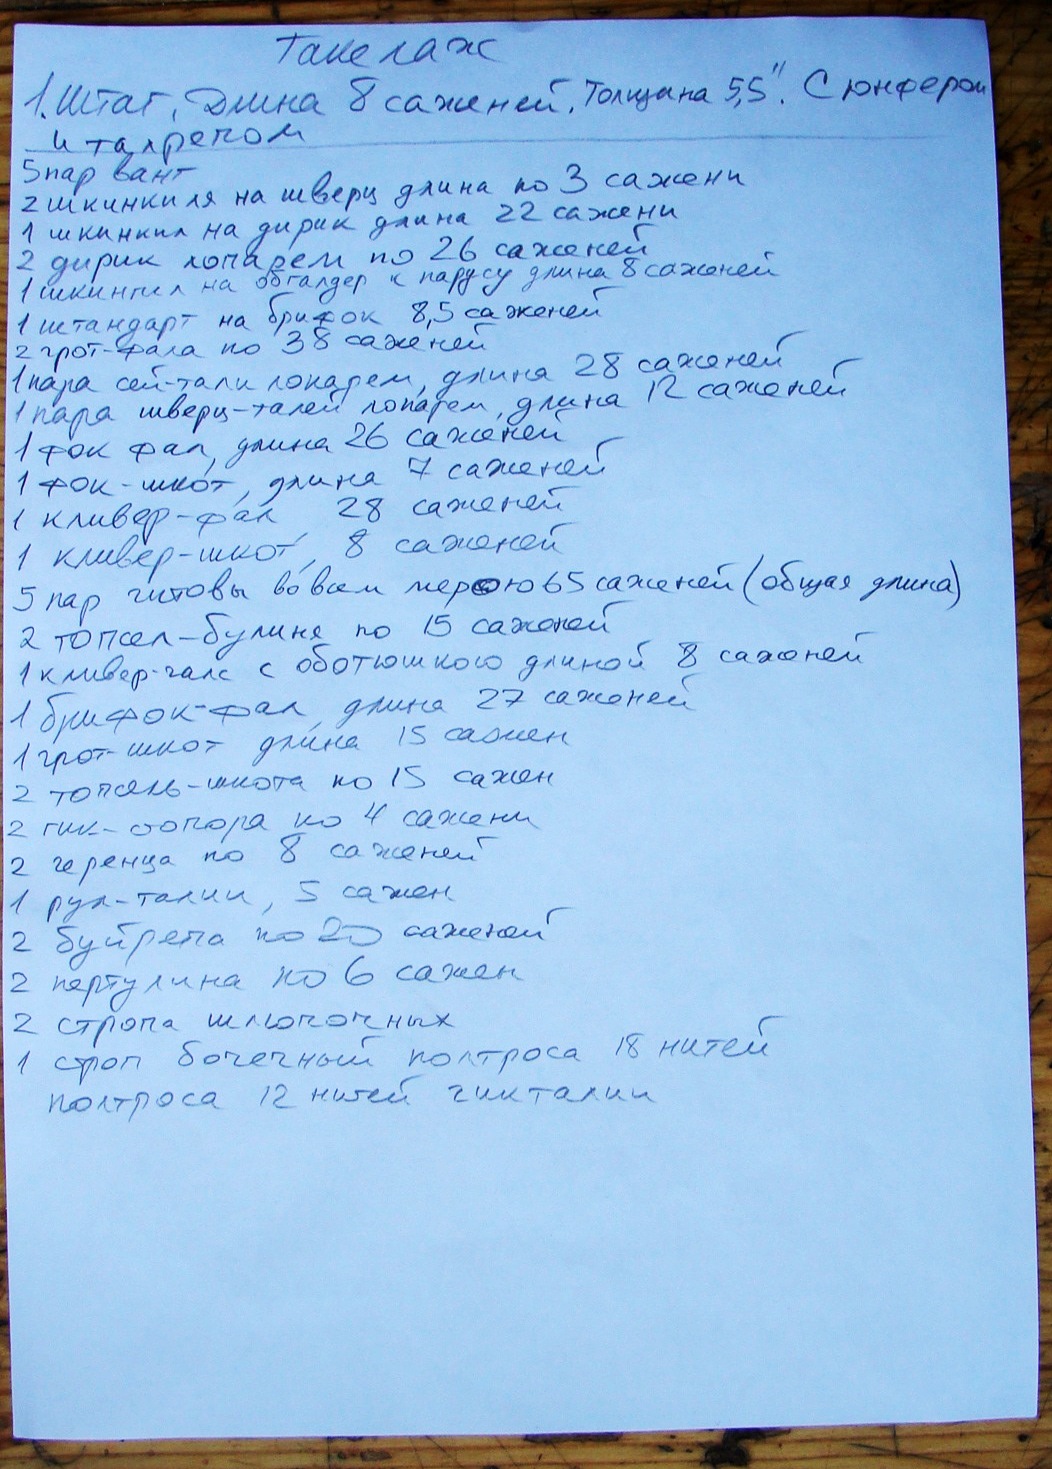 Такелаж
1. Штаг, Длина 8 саженей. Толщина 5,5". С юнфером
и талрепом
5 пар вант
2 шкинкиля на шверц длина по 3 сажени
1 шкинкил на дирик длина 22 сажени
2 дирик лопарем по 26 саженей
1 шкингил на обгалдер к парусу длина 8 саженей
1 штандарт на брифок 8,5 саженей
2 грот-фала по 38 саженей
1 пара сей-тали лопарем, длина 28 саженей
1 пара шверц-талей лопарем, длина 12 саженей
1 фок фал, длина 26 саженей
1 фок-шкот, длина 7 саженей
1 кливер-фал 28 саженей
1 кливер-шкот, 8 саженей
5 пар гитовы во всем мерою 65 саженей (общая длина)
2 топсел-булиня по 15 саженей
1 кливер-галс с оботюшкою длиной 8 саженей
1 брифок-фал, длина 27 саженей
1 грот-шкот длина 15 сажен
2 топсель-шкота по 15 сажен
2 гик-стопора по 4 сажени
2 геренца по 8 саженей
1 рул-талии, 5 сажен
2 буйрепа по 20 саженей
2 пертулина по 6 сажен
2 стропа шлюпочных
1 строп бочечный полтроса 18 нитей
полтроса 12 нитей гикталии